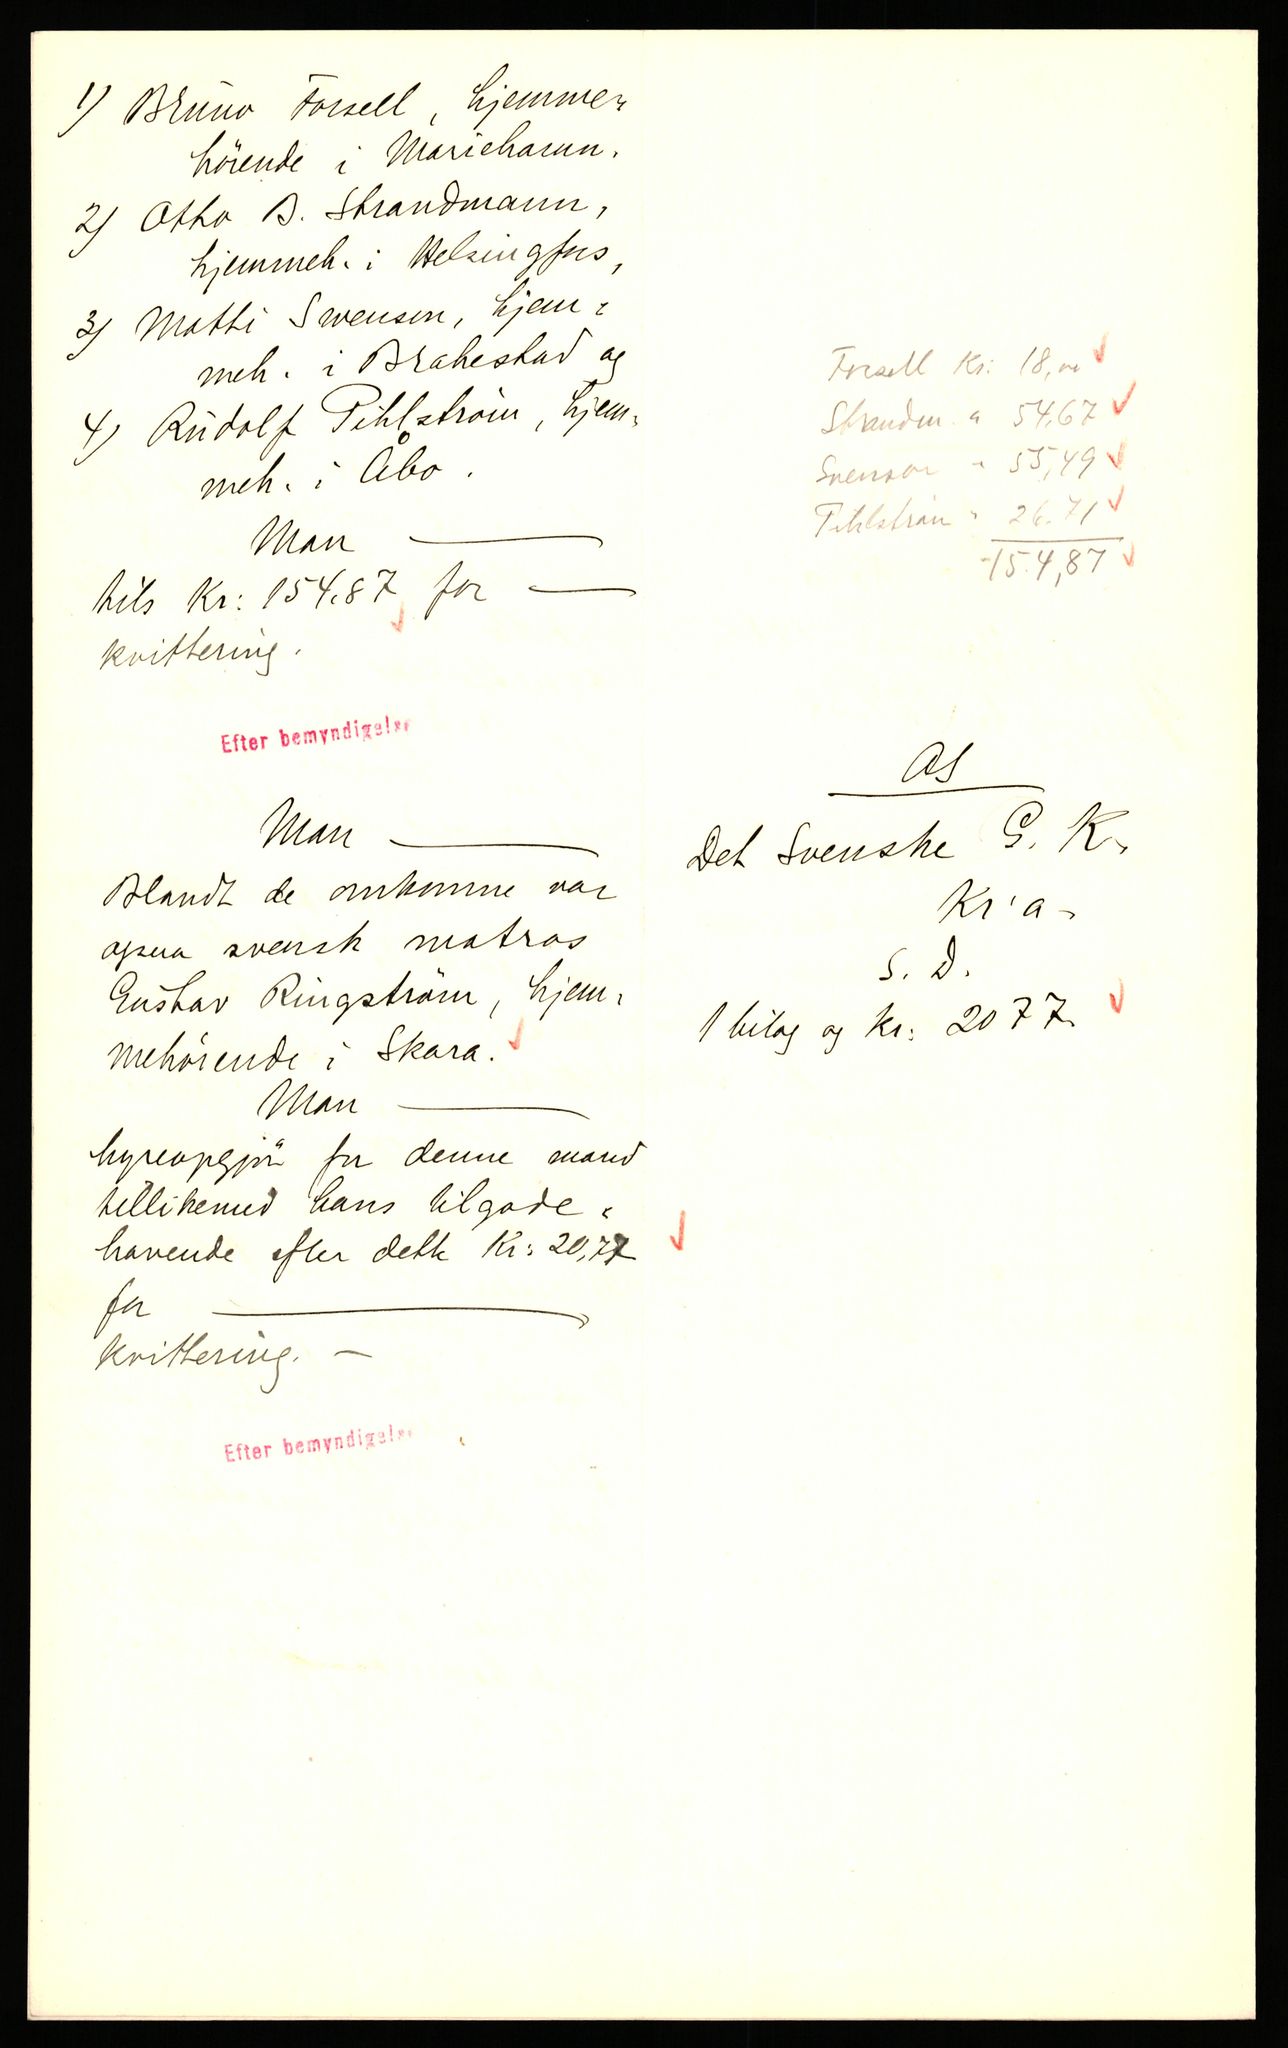 1) Bruno Forsell, hjemme-
hörende i Mariehamn.
2) Otto B. Strandmann,
hjemmeh. i Helsingfors,
3) Matti Swensen, hjem-
meh. i Brahestad og
4) Rudolf Pihlström, hjem-
meh. i Åbo.
Man
tils Kr: 154.87 for
kvittering.
Efter bemyndigelse
Forsell Kr: 18,00
Strandm. " 54,67
Svenson " 55,49
Pihlström " 26.71
154,87
Man
Blandt de omkomne var
ogsaa svensk matros
Gustav Ringström, hjem-
mehörende i Skara.
Man
hyreopgjör for denne mand
tillikemed hans tilgode-
havende efter dette Kr: 20,77
for
kvittering. -
Efter bemyndigelse
AS
Det Svenske G. K.
Kr'a -
S. D.
1 bilag og kr: 2077